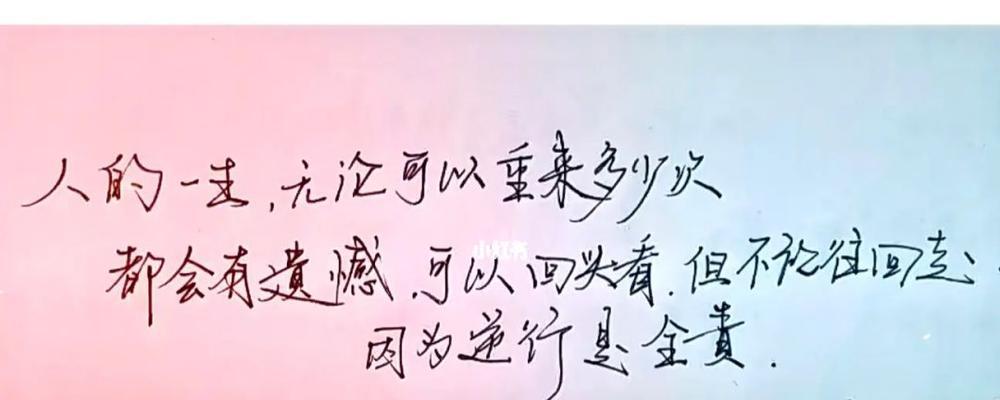 人的一生,无论可以重来多少次
都会有遗憾,可以回头看,但不能往回走;
因为逆行是全责.
小红书